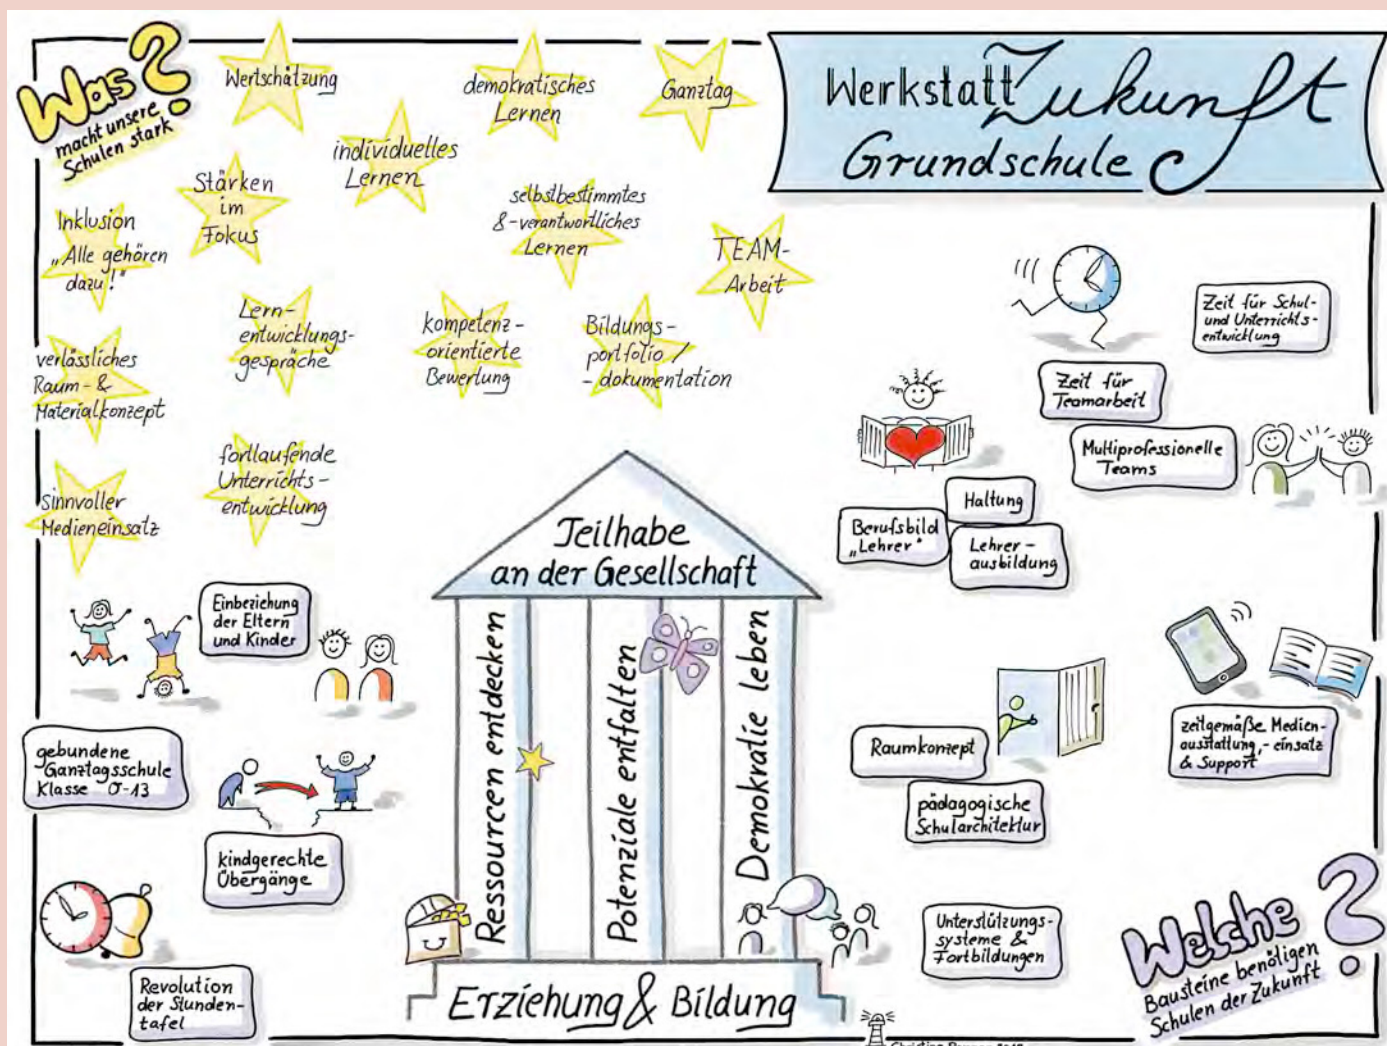 Was?
macht unsere
Schulen stark
Wertschätzung
demokratisches
Lernen
Ganztag
Werkstatt Zukunft
Grundschule
individuelles
Lernen
Stärken
im
Fokus
selbstbestimmtes
&-verantwortliches
Lernen
Inklusion
„Alle gehören
dazu!"
TEAM-
Arbeit
Lern-
entwicklungs-
gespräche
kompetenz-
orientierte
Bewertung
Bildungs-
portfolio/
-dokumentation
verlässliches
Raum- &
Materialkonzept
fortlaufende
Unterrichts-
entwicklung
Sinnvoller
Medieneinsatz
Zeit für Schul-
und Unterrichts-
entwicklung
Zeit für
Teamarbeit
Multiprofessionelle
Teams
Haltung
Berufsbild
„Lehrer"
Lehrer-
ausbildung
Teilhabe
an der Gesellschaft
Ressourcen entdecken
Potenziale entfalten
Demokratie leben
Erziehung & Bildung
Einbeziehung
der Eltern
und Kinder
gebundene
Ganztagsschule
Klasse 0-13
kindgerechte
Übergänge
Revolution
der Stunden-
tafel
Raumkonzept
pädagogische
Schularchitektur
zeitgemäße Medien-
ausstattung,-einsatz
& Support
Unterstützungs-
systeme &
Fortbildungen
Welche?
Bausteine benötigen
Schulen der Zukunft